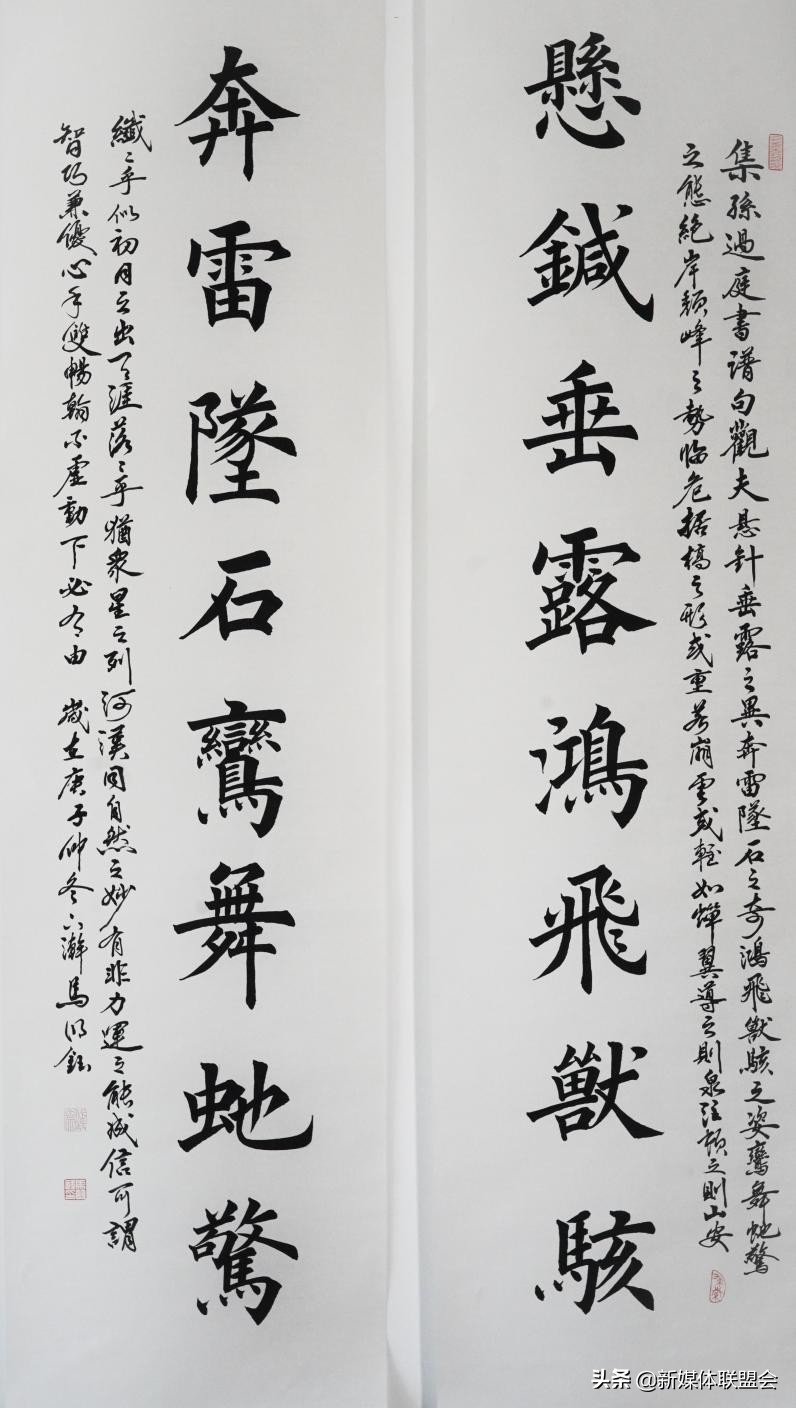 集孫過庭書譜句觀夫悬針垂露之異奔雷墜石之奇鴻飛獸駭之姿鸞舞虵驚
之態絶岸頹峰之勢临危据槁之形或重若崩雲或輕如蟬翼導之則泉注頓之則山安
懸鍼垂露鴻飛獸駭
奔雷墜石鸞舞虵驚
纖纖乎似初月之出天涯落落乎猶衆星之列河漢同自然之妙有非力運之能成信可謂
智巧兼優心手雙暢翰不虛動下必有由 歲在庚子仲冬 瀚馬 鈺
头条 @新媒体联盟会